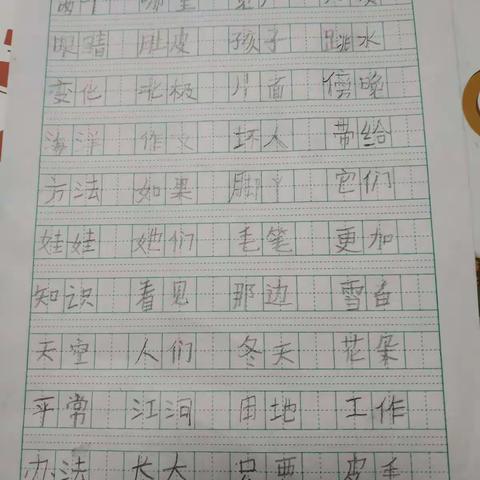 哪里
眼睛 肚皮 孩子 跳水
变化 北极 片面 傍晚
海洋 作文 坏人 带给
方法 如果 脚丫 它们
娃娃 她们 毛笔 更加
知识 看见 那边 雪白
天空 人们 冬天 花朵
平常 江河 田地 工作
办法 长大 只要 皮毛